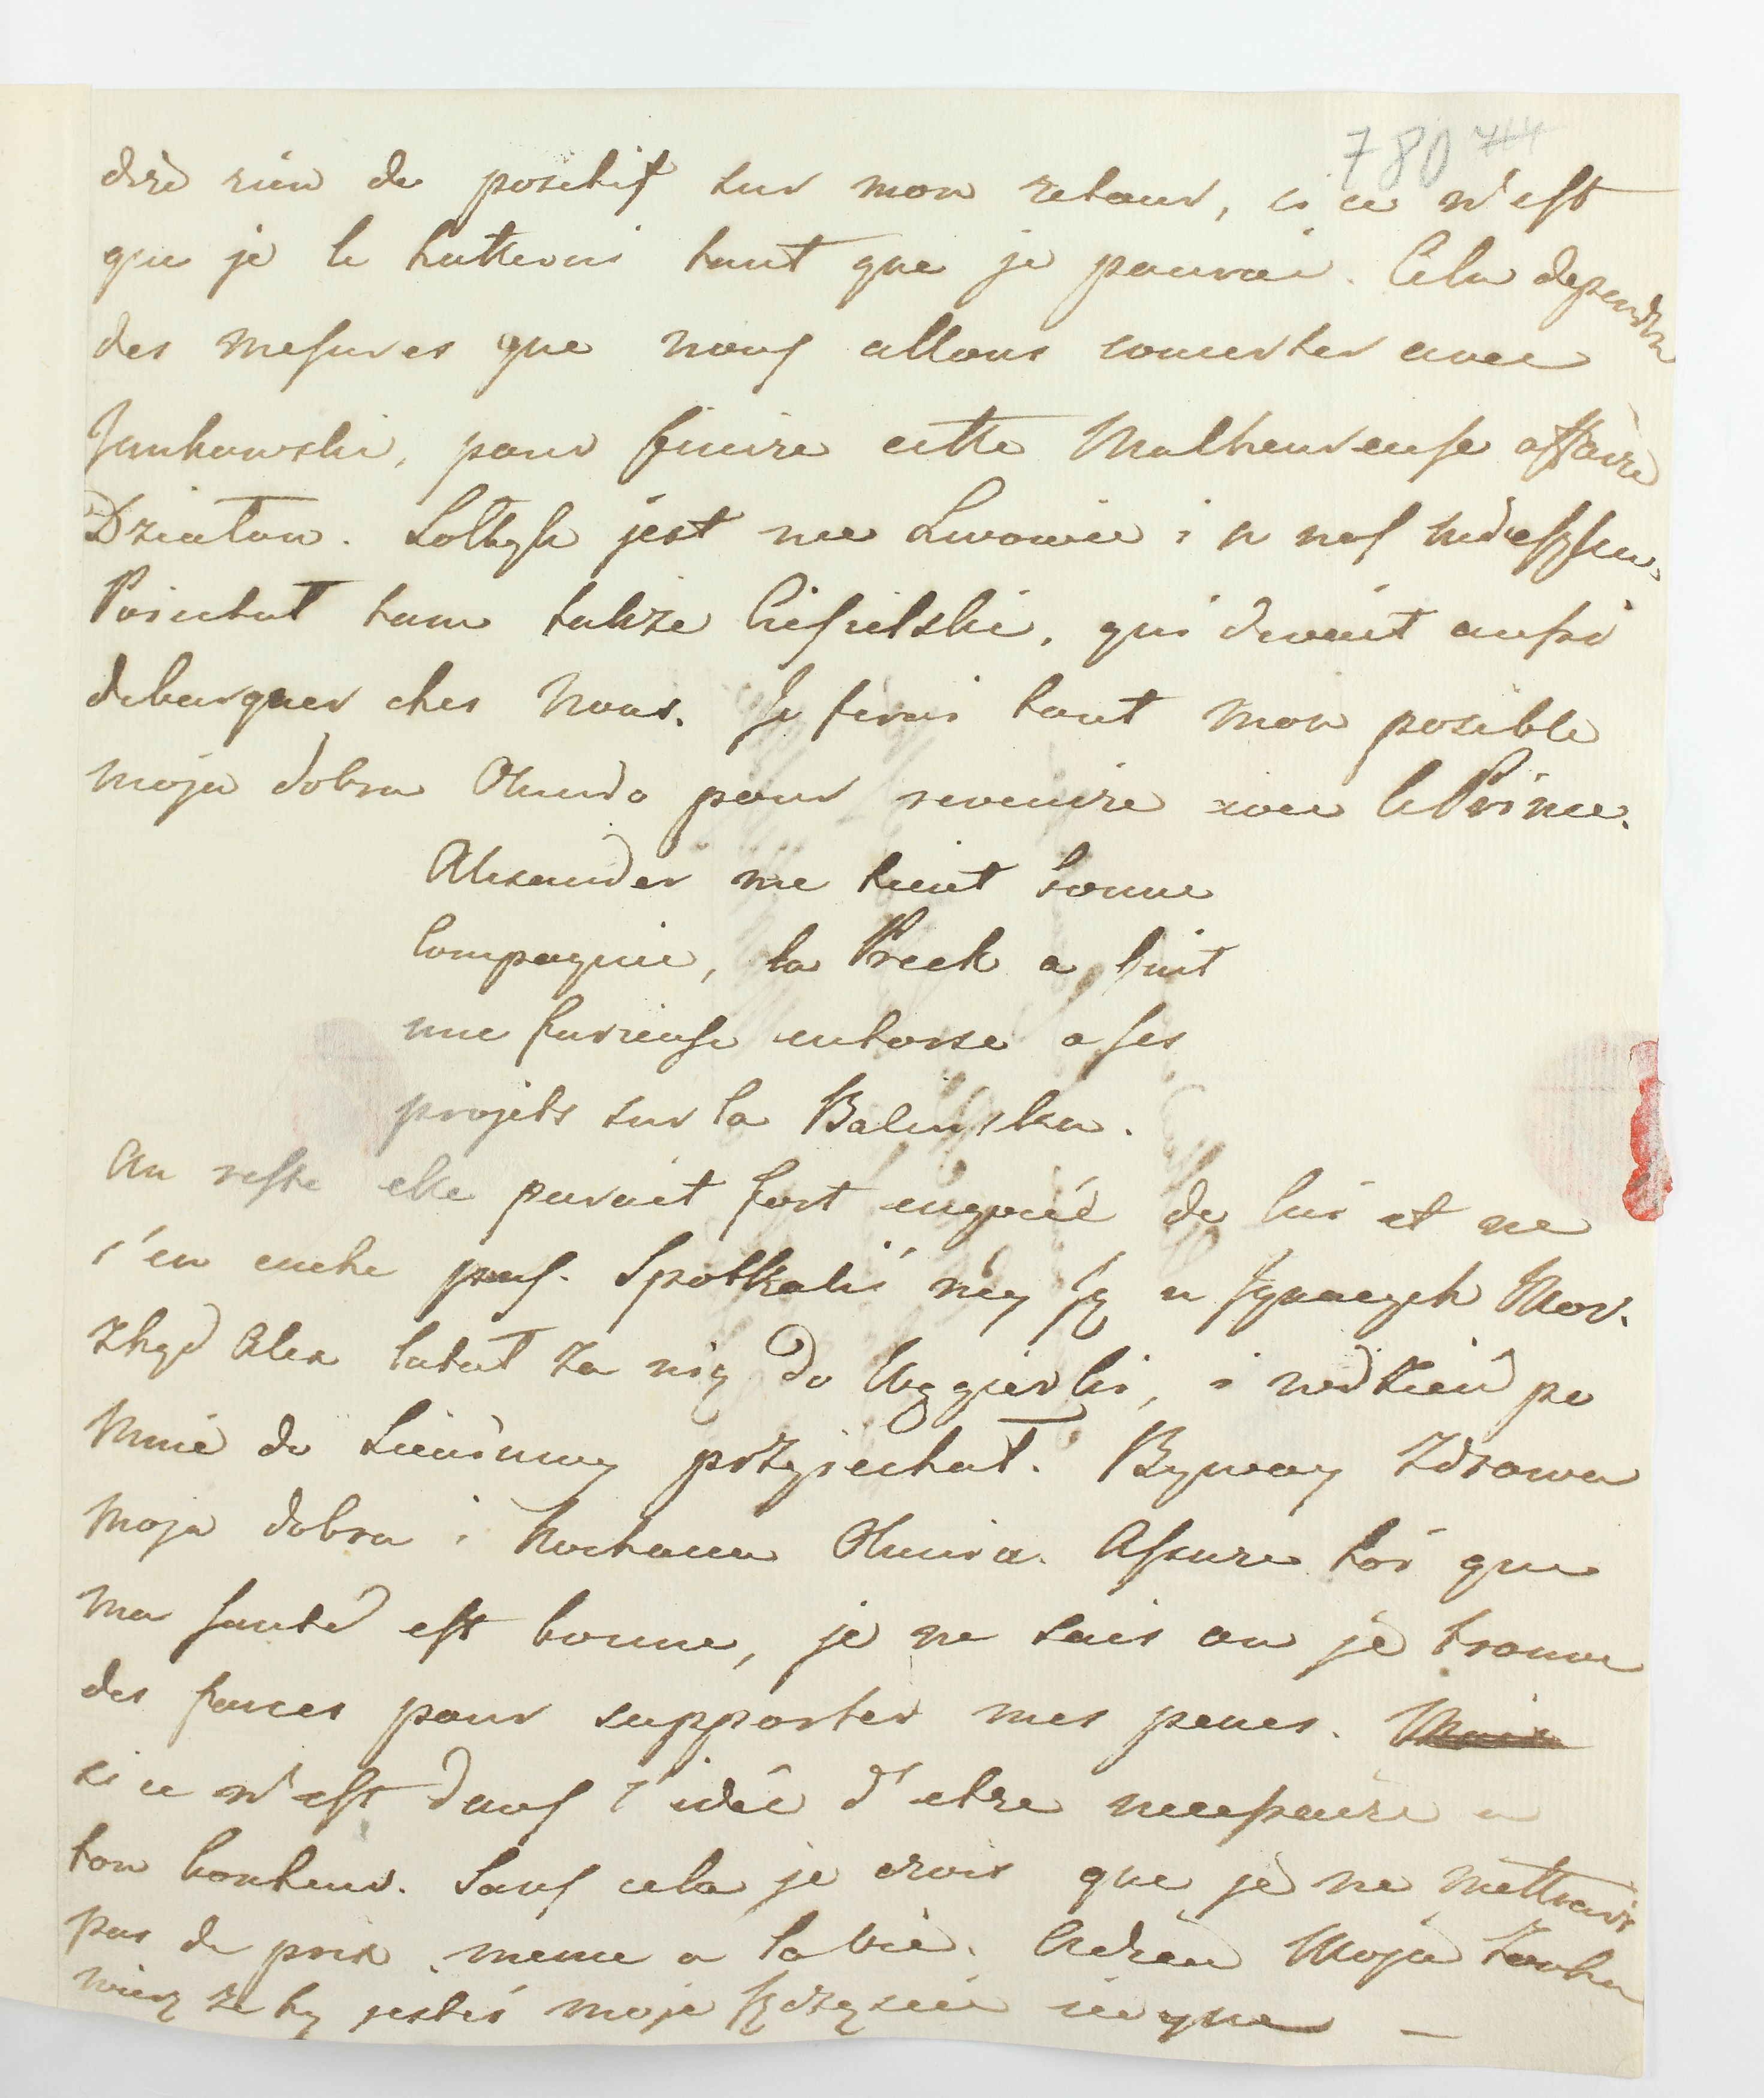 780 744
dire rien de positif sur mon retour, si ce n'est
que je le hatterais tant que je pourrai. Cela dependra
des mesures que nous allons concerter avec
Jankowski, pour finire cette Malheureuse affaire
Dziatow. Soltyk jest we Lwowie i u nas
Poiechał tam takze Ciesielski, qui devait aussi
debarquer ches Nous. Je ferais tout mon posible
moja dobra Olesiu pour revenire avec le Prince.
Alexander me tient bonne
Compagnie, la Preck a fait
une furieuse entorse a ses
projets sur la Balinska.
Au reste elle parait fort engoué de lui et ne
s'en cache pas. Spotkaliśmy Ją u Ignacych Mor.
Zkąd Alex latał za nią do Węgierki, i
Mnie do Sieniawy przyiechał. Byway Zdrowa
Moja dobra i Kochana Assure toi que
ma santé est bonne, je ne sais ou je trouve
des forces pour supporter mes penes. Mais
si ce n'est dans l'idée d'etre necessaire a
ton bonheur. Sauf cela je crois que je ne mettrais
pas de prix meme a la vie. Adieu Moja
wierz ze ty jesteś moje